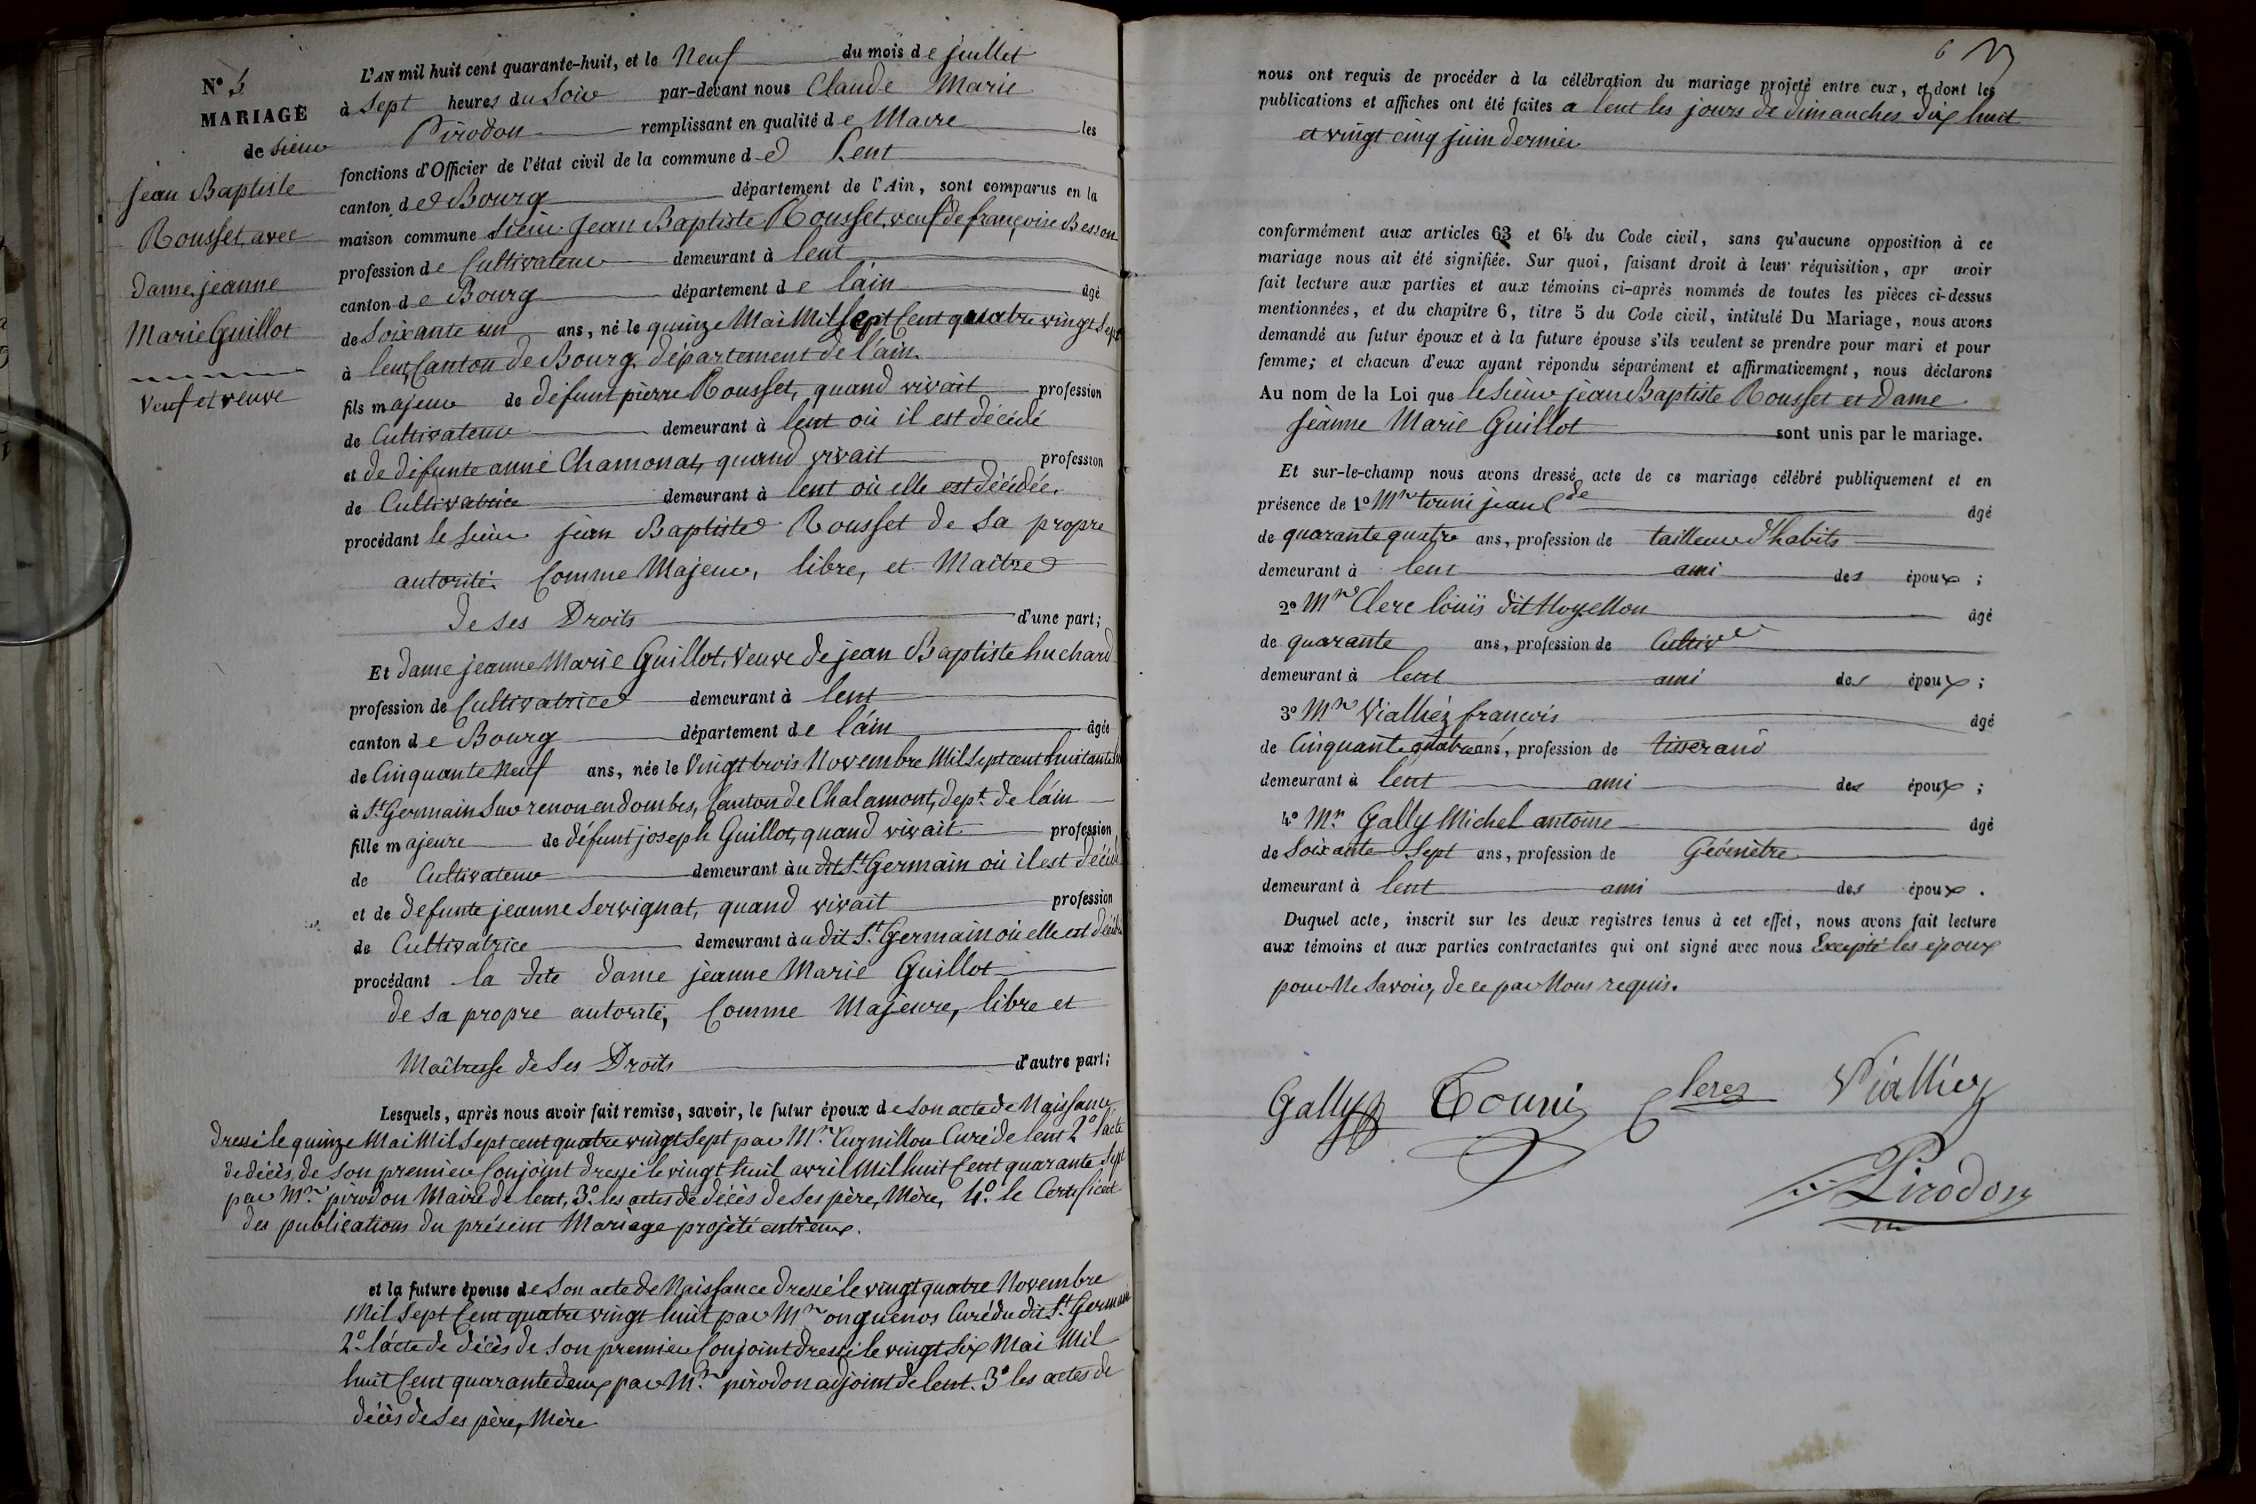 N° 5
MARIAGE
de sieur
Jean Baptiste
Rousset, avec
Dame jeanne
Marie Guillot
Veuf et veuve
L'AN mil huit cent quarante-huit, et le Neuf du mois de juillet
à Sept heures du Soir par-devant nous Claude Marie
Pirodon remplissant en qualité de Maire les
fonctions d'Officier de l'état civil de la commune de Lent
canton de Bourg département de l'Ain, sont comparus en la
maison commune Sieur Jean Baptiste Rousset, veuf de françoise Besson
profession de Cultivateur demeurant à lent
canton de Bourg département de l'ain âgé
de Soixante un ans, né le quinze Mai Mil Sept Cent quatre vingt Sept
à lent, Canton de Bourg, département de l'ain.
fils majeur de défunt pierre Rousset, quand vivait profession
de Cultivateur demeurant à lent où il est décédé
et de défunte anne Chamonat, quand vivait profession
de Cultivatrice demeurant à lent où elle est décédée.
procédant le sieur jean Baptiste Rousset de sa propre
autorité. Comme Majeur, libre, et Maître
de ses Droits d'une part;
Et dame jeanne Marie Guillot, Veuve de jean Baptiste huchard
profession de Cultivatrice demeurant à lent
canton de Bourg département de l'ain âgée
de Cinquante Neuf ans, née le Vingt trois Novembre Mil Sept cent huitante
à St Germain Sur renon en dombes, Canton de Chalamont, dept. de l'ain
fille majeure de défunt joseph Guillot, quand vivait profession
de Cultivateur demeurant au dit St Germain où il est décédé
et de defunte jeanne Servignat, quand vivait profession
de Cultivatrice demeurant au dit St Germain où elle est décédée
procédant la dite dame jeanne Marie Guillot
de sa propre autorité, Comme Majeure, libre et
Maîtresse de Ses Droits d'autre part;
Lesquels, après nous avoir fait remise, savoir, le futur époux de son acte de Naissance
dressé le quinze Mai Mil Sept cent quatre vingt Sept par Mr. Curnillon Curé de lent 2° l'acte
de décès, de son premier Conjoint dressé le vingt huit avril Mil huit Cent quarante Sept
par Mr. pirodon Maire de lent, 3° les actes de décès de Ses père, Mère, 4°. le Certificat
des publications du présent Mariage projété entr'eux.
et la future épouse de Son acte de Naissance dressé le vingt quatre Novembre
Mil Sept Cent quatre vingt huit par Mr onguenos Curé du dit St Germain
2° l'acte de décès de Son premier Conjoint dressé le vingt Six Mai Mil
huit Cent quarante deux par Mr. pirodon adjoint de lent. 3° les actes de
décès de Ses père, Mère
6
nous ont requis de procéder à la célébration du mariage projeté entre eux, et dont les
publications et affiches ont été faites a lent les jours de dimanches dix huit
et vingt cinq juin dernier
conformément aux articles 63 et 64 du Code civil, sans qu'aucune opposition à ce
mariage nous ait été signifiée. Sur quoi, faisant droit à leur réquisition, apr avoir
fait lecture aux parties et aux témoins ci-après nommés de toutes les pièces ci-dessus
mentionnées, et du chapitre 6, titre 5 du Code civil, intitulé Du Mariage, nous avons
demandé au futur époux et à la future épouse s'ils veulent se prendre pour mari et pour
femme; et chacun d'eux ayant répondu séparément et affirmativement, nous déclarons
Au nom de la Loi que le sieur jean Baptiste Rousset et dame
Jeanne Marie Guillot sont unis par le mariage.
Et sur-le-champ nous avons dressé acte de ce mariage célébré publiquement et en
présence de 1° Mr touni jean Cde âgé
de quarante quatre ans, profession de tailleur d'habits
demeurant à lent ami des époux ;
2° Mr Clerc louis dit Moyellon âgé
de quarante ans, profession de Cultivr
demeurant à lent ami des époux ;
3° Mr Vialliez françois âgé
de Cinquante quatre ans, profession de tisserand
demeurant à lent ami des époux ;
4° Mr Gally Michel antoine âgé
de Soixante Sept ans, profession de Géomètre
demeurant à lent ami des époux .
Duquel acte, inscrit sur les deux registres tenus à cet effet, nous avons fait lecture
aux témoins et aux parties contractantes qui ont signé avec nous Excepté les époux
pour Ne Savoir, de ce par Nous requis.
Gally Touni Clerc Viallier
Pirodon